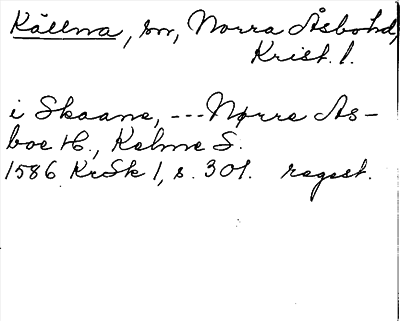 Källna, sn, Norra Åsbohd,
Krist. l.
i Skaane, --- Nørre As-
boe H., Kelne S.
1586 KrSk 1, s. 301. regest.